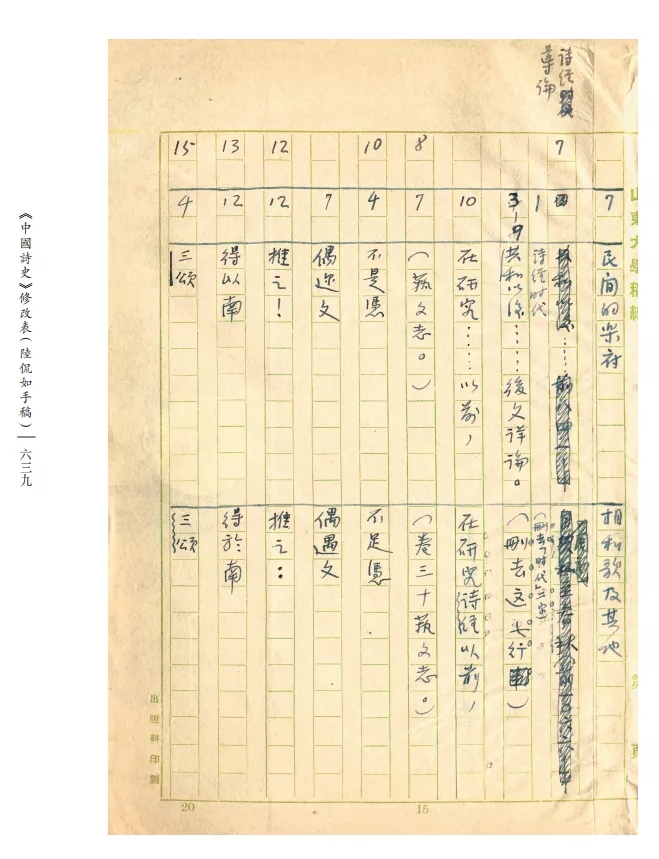 詩經
導論
山東大學稿紙
7
7
民間的樂府
相和歌及其他
1
詩經时代
(刪去「时代」二字)
3-9
共和以後……後文詳論。
(刪去这七行)
10
在研究……以前,
在研究詩經以前,
8
7
(藝文志。)
(卷三十藝文志。)
10
4
不是憑
不足憑
7
偶迩文
偶遇文
12
12
推之!
推之:
13
12
得以南
得於南
15
4
三頌
三頌
第 頁
出版科印製
20
15
《中國詩史》修改表(陸侃如手稿)— 六三九